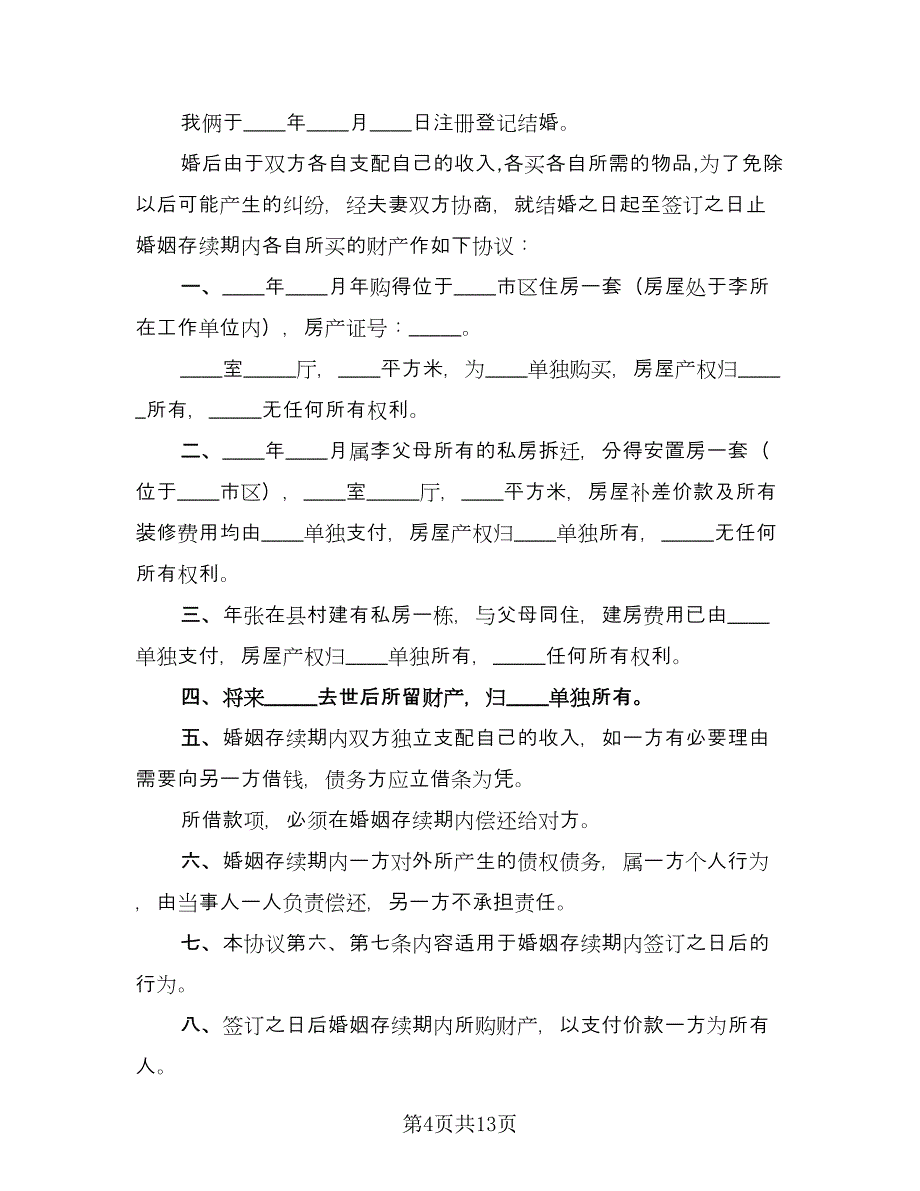 我俩于____年____月____日注册登记结婚。
婚后由于双方各自支配自己的收入,各买各自所需的物品,为了免除
以后可能产生的纠纷，经夫妻双方协商，就结婚之日起至签订之日止
婚姻存续期内各自所买的财产作如下协议：
一、____年____月年购得位于____市区住房一套（房屋处于李所
在工作单位内），房产证号：_____。
____室_____厅，____平方米，为____单独购买，房屋产权归____
_所有，_____无任何所有权利。
二、____年____月属李父母所有的私房拆迁，分得安置房一套（
位于____市区），____室_____厅，____平方米，房屋补差价款及所有
装修费用均由____单独支付，房屋产权归____单独所有，_____无任何
所有权利。
三、年张在县村建有私房一栋，与父母同住，建房费用已由____
单独支付，房屋产权归____单独所有，_____任何所有权利。
四、将来_____去世后所留财产，归____单独所有。
五、婚姻存续期内双方独立支配自己的收入，如一方有必要理由
需要向另一方借钱，债务方应立借条为凭。
所借款项，必须在婚姻存续期内偿还给对方。
六、婚姻存续期内一方对外所产生的债权债务，属一方个人行为
，由当事人一人负责偿还，另一方不承担责任。
七、本协议第六、第七条内容适用于婚姻存续期内签订之日后的
行为。
八、签订之日后婚姻存续期内所购财产，以支付价款一方为所有
人。
第4页共13页